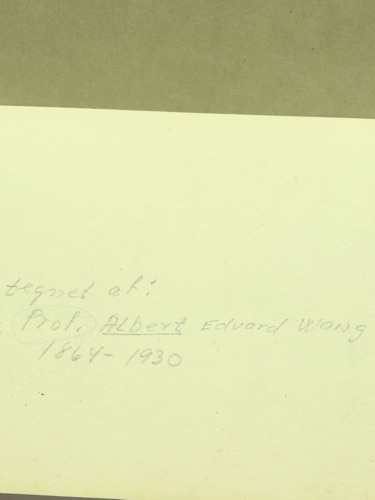 tegnet af:
Prof. Albert Edvard Wang
1864-1930